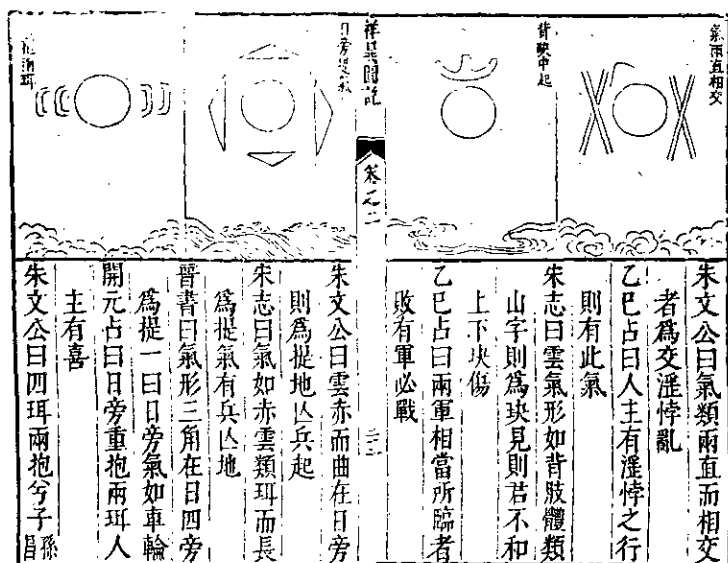 氣兩直相交
背玦中起
朱文公曰氣類兩直而相交
者爲交淫悖亂
乙巳占曰人主有淫悖之行
則有此氣
宋志曰雲氣形如背肢體類
山字則爲玦見則君不和
上下玦傷
乙巳占曰兩軍相當所臨者
敗有軍必戰
祥異圖說
卷之二
日旁
珥
朱文公曰雲赤而曲在日旁
則爲提地凶兵起
宋志曰氣如赤雲類珥而長
爲提氣有兵凶地
晉書曰氣形三角在日四旁
爲提一曰日旁氣如車輪
開元占曰日旁重抱兩珥人
主有喜
朱文公曰四珥兩抱兮子孫昌